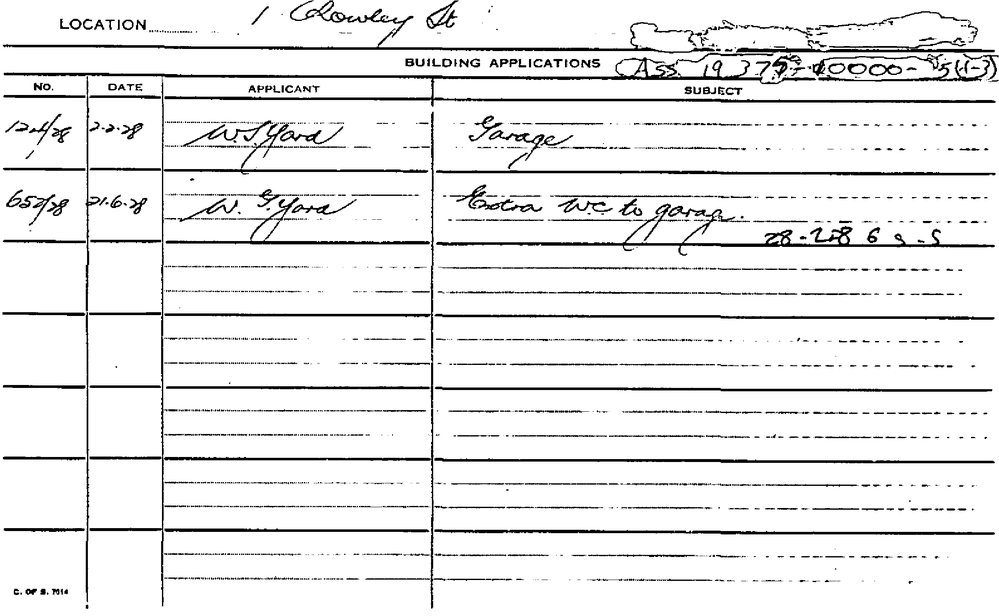 LOCATION 1 Crowley St
BUILDING APPLICATIONS
NO. DATE APPLICANT SUBJECT
124/28 2.2.28 W. Yard Garage
652/28 21.6.28 W. G. Yard Extra W.C. to garage.
C. OF S. 7014